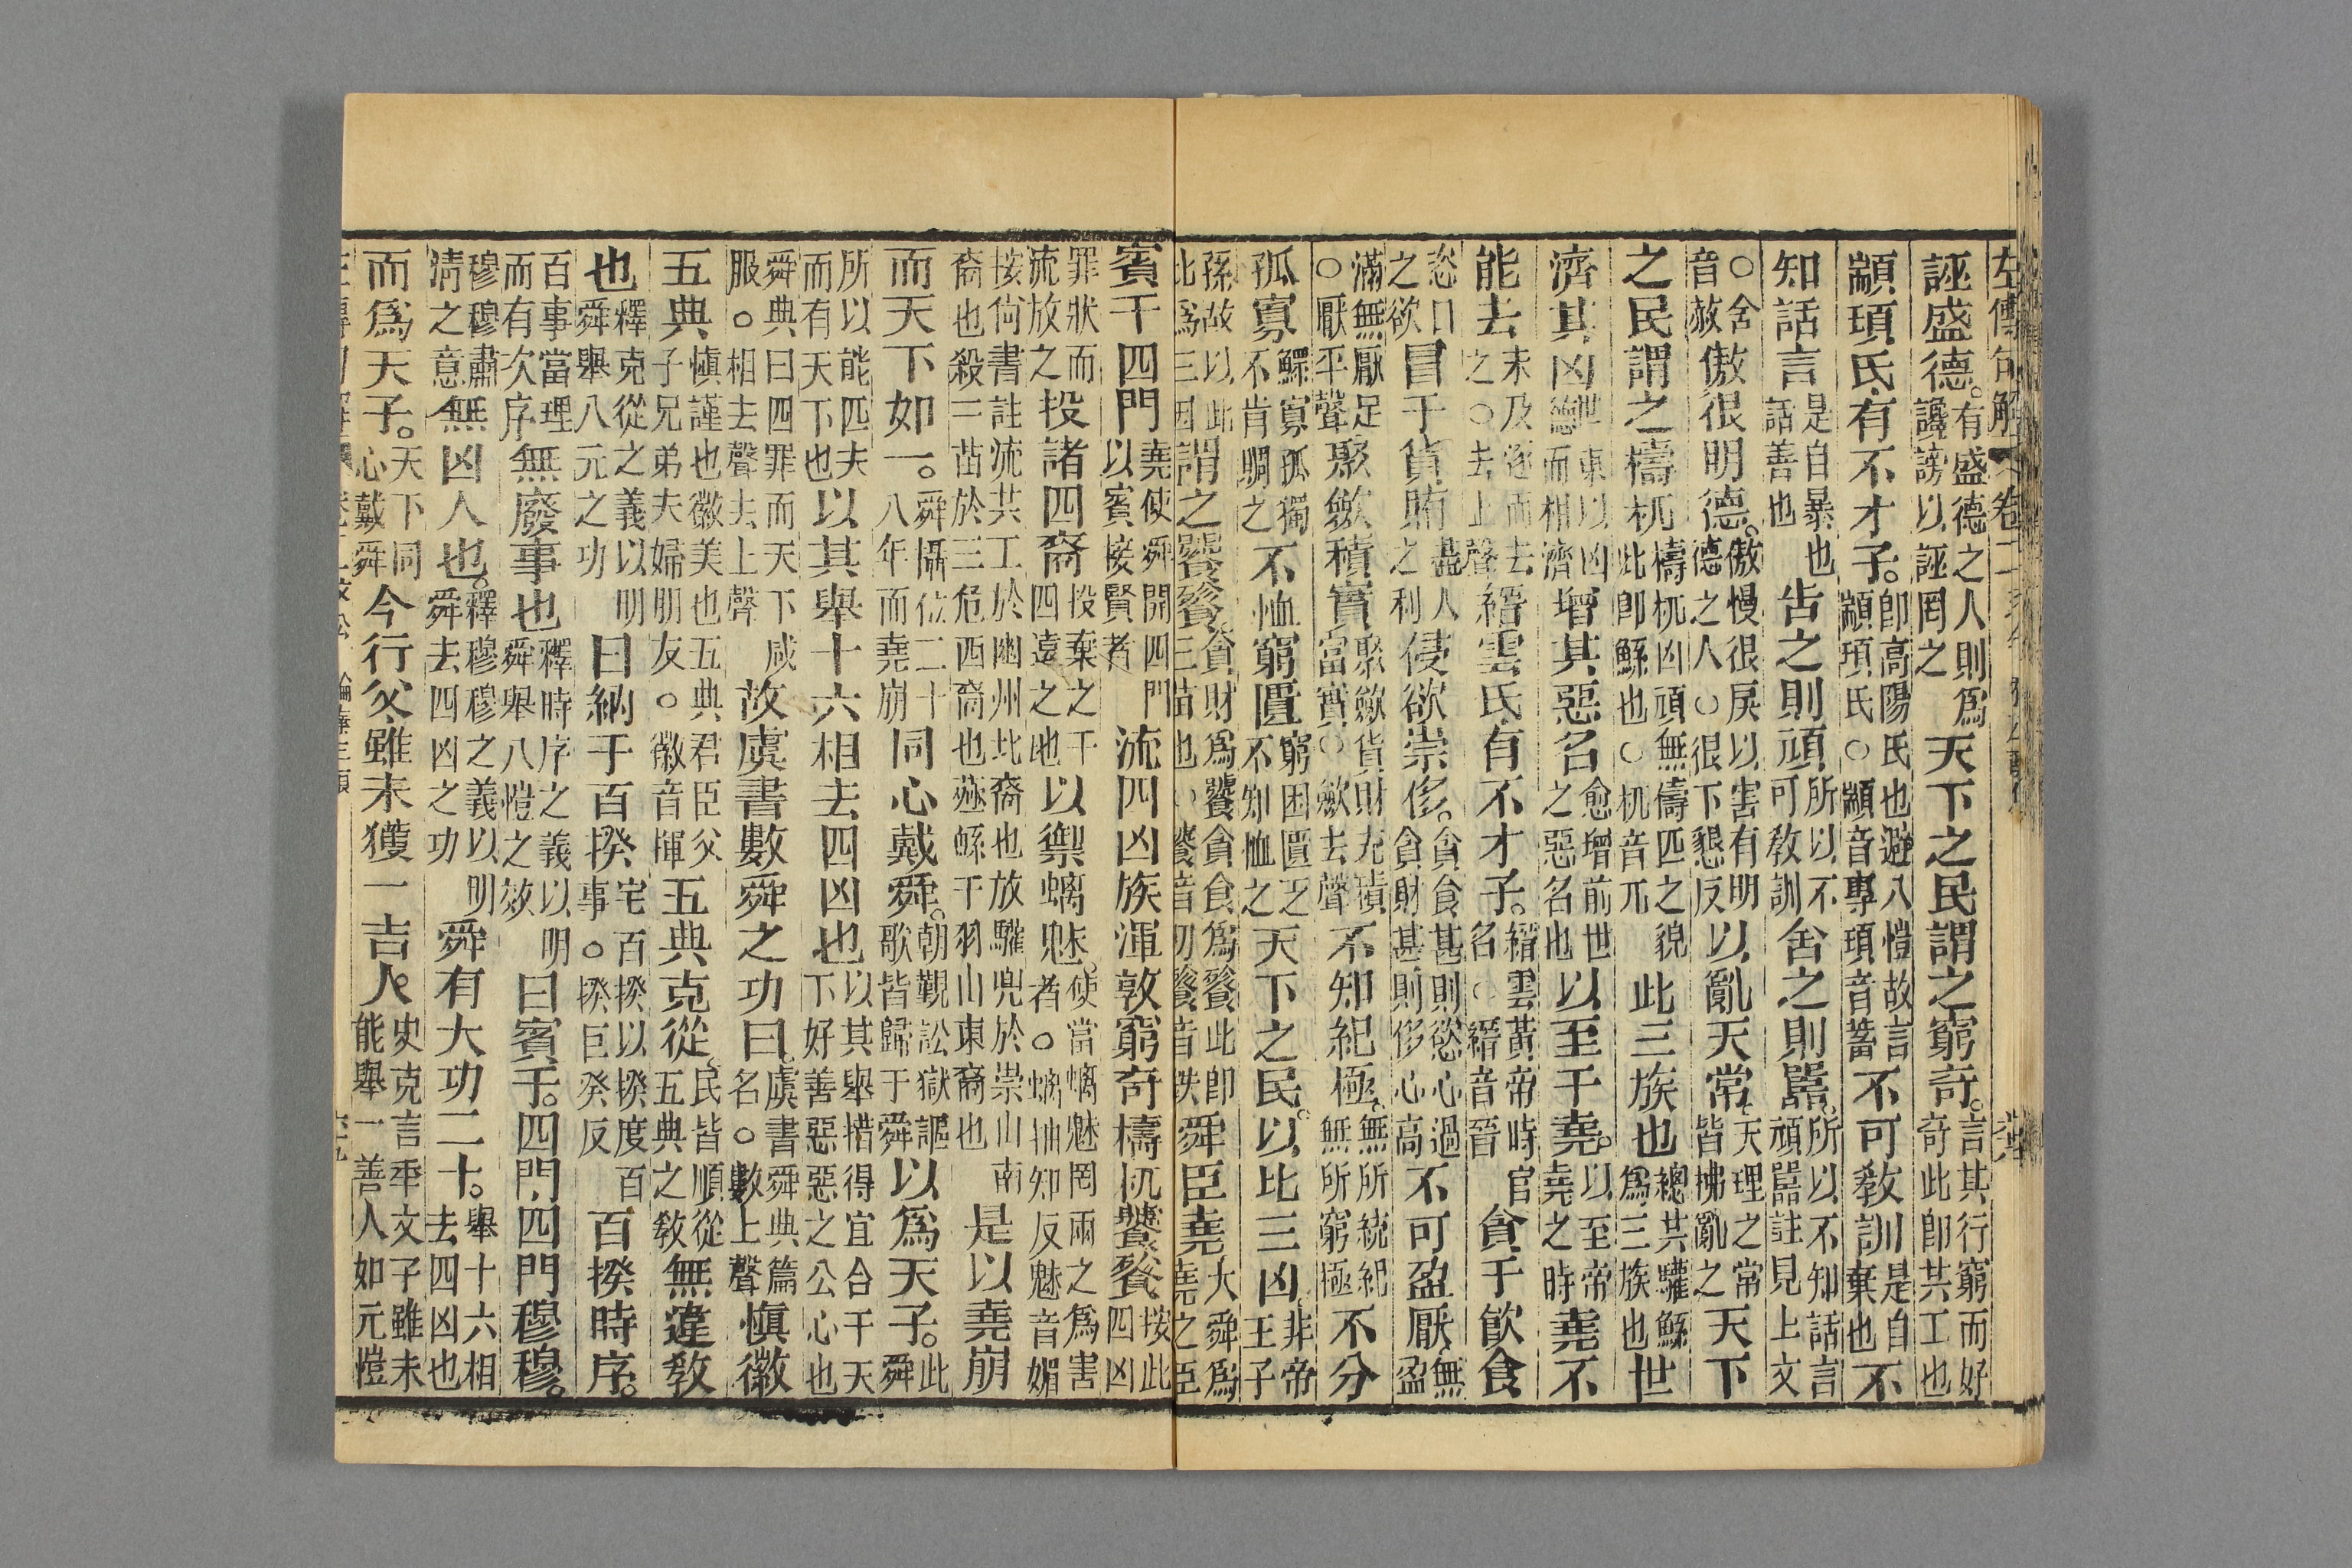 誣盛德。有盛德之人則爲讒謗以誣罔之天下之民謂之窮奇。言其行窮而好奇此卽共工也
顓頊氏有不才子。卽高陽氏也避八愷故言顓頊氏○顓音專頊音蓄不可敎訓是自棄也不
知話言是自暴也話善也告之則頑所以不可敎訓舍之則嚚。所以不知話言頑嚚註見上文
○舍音赦傲很明德。傲慢很戾以害有明德之人○很下懇反以亂天常。天理之常皆拂亂之天下
之民謂之檮杌檮杌凶頑無儔匹之貌此卽鯀也○杌音兀此三族也總共驩鯀爲三族也世
濟其凶世東以凶德而相濟增其惡名愈增前世之惡名也以至于堯。以至帝堯之時堯不
能去未及逐而去之○去上聲縉雲氏有不才子。縉雲黃帝時官名○縉音晉貪于飮食
恣口之欲冒于貨賄人之利侵欲崇侈。貪食甚則慾心過貪財甚則侈心高不可盈厭無盈
滿無厭足○厭平聲聚斂積實聚斂貨財充積富實○斂去聲不知紀極。無所統紀無所窮極不分
孤寡鰥寡孤獨不肯賙之不恤窮匱窮困匱乏不知恤之天下之民。以比三凶非帝王子
孫故以此比爲三凶謂之饕餮貪財爲饕貪食爲餮此卽三苗也○饕音叨餮音鐵舜臣堯大舜爲堯之臣
賓于四門堯使舜開四門以賓接賢者流四凶族渾敦窮奇檮杌饕餮按此四凶
罪狀而流放之投諸四裔投棄之于四遠之地以禦螭魅。使當螭魅罔兩之爲害者○螭抽知反魅音媚
按尙書註流共工於幽州北裔也放驩兜於崇山南裔也殺三苗於三危西裔也殛鯀于羽山東裔也是以堯崩
而天下如一。舜攝位二十八年而堯崩同心戴舜。朝覲訟獄謳歌皆歸于舜以爲天子。此舜
所以能匹夫而有天下也以其舉十六相去四凶也以其舉措得宜合于天下好善惡惡之公心也
舜典曰四罪而天下咸服○相去聲去上聲故虞書數舜之功曰。虞書舜典篇名○數上聲愼徽
五典愼謹也徽美也五典君臣父子兄弟夫婦朋友○徽音揮五典克從。民皆順從五典之敎無違敎
也釋克從之義以明舜舉八元之功曰納于百揆宅百揆以揆度百事○揆巨癸反百揆時序。
百事當理而有次序無廢事也釋時序之義以明舜舉八愷之效曰賓于。四門四門穆穆。
穆穆肅淸之意無凶人也。釋穆穆之義以明舜去四凶之功舜有大功二十。舉十六相去四凶也
而爲天子。天下同心戴舜今行父雖未獲一吉人史克言季文子雖未能舉一善人如元愷